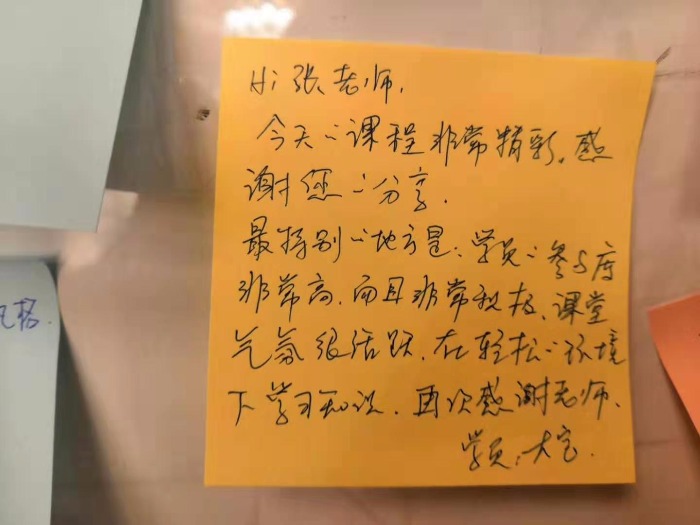 Hi 张老师,
今天的课程非常精彩。感
谢您的分享.
最特别的地方是:学员的参与度
非常高.而且非常积极、课堂
气氛很活跃.在轻松的环境
下学习知识.再次感谢老师、
学员:大宝.
格.